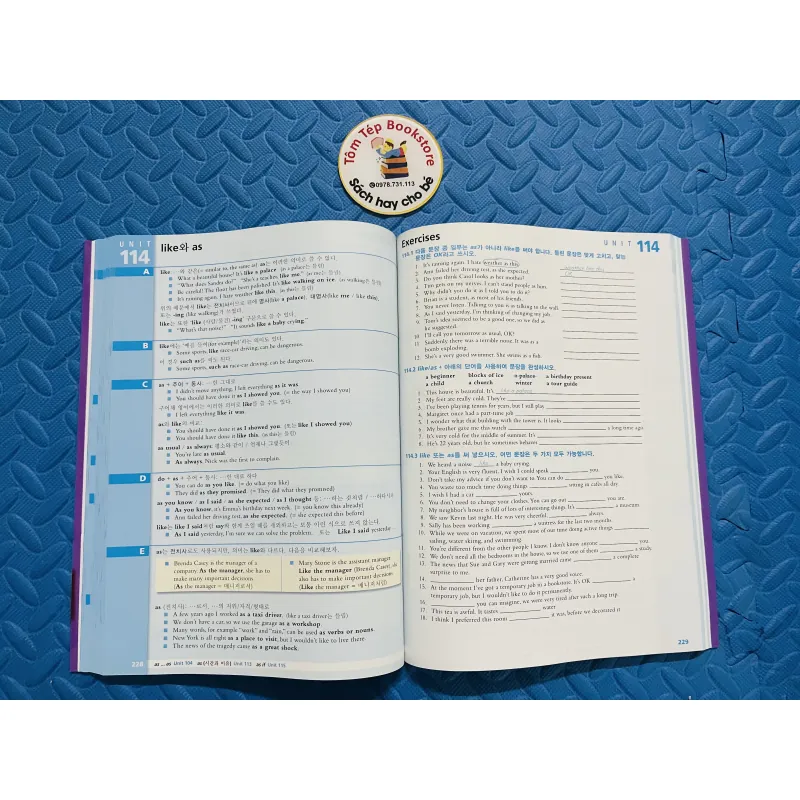 Tôm Tép Bookstore
0978.731.113
Sách hay cho bé
UNIT
114
like와 as
A
What a beautiful house! It's like a palace.
"What does Sandra do?" "She's a teacher, like me."
Be careful! The floor has been polished. It's like walking on ice.
It's raining again. I hate weather like this.
"What's that noise?" "It sounds like a baby crying."
B
Some sports, like race-car driving, can be dangerous.
Some sports, such as race-car driving, can be dangerous.
C
as + 주어 + 동사:
I didn't move anything. I left everything as it was.
You should have done it as I showed you. (= the way I showed you)
I left everything like it was.
You should have done it as I showed you. (또는 like I showed you)
You should have done it like this.
as usual / as always
You're late as usual.
As always, Nick was the first to complain.
D
do + as + 주어 + 동사:
You can do as you like. (= do what you like)
They did as they promised. (= They did what they promised)
as you know / as I said / as she expected / as I thought 등:
As you know, it's Emma's birthday next week. (= you know this already)
Ann failed her driving test, as she expected. (= she expected this before)
As I said yesterday, I'm sure we can solve the problem. 또는 Like I said yesterday
E
Brenda Casey is the manager of a
company. As the manager, she has to
make many important decisions
(As the manager = 매니저로서)
Mary Stone is the assistant manager
Like the manager (Brenda Casey), she
also has to make important decisions
(Like the manager = 매니저처럼)
A few years ago I worked as a taxi driver.
We don't have a car, so we use the garage as a workshop.
Many words, for example "work" and "rain," can be used as verbs or nouns.
New York is all right as a place to visit, but I wouldn't like to live there.
The news of the tragedy came as a great shock.
228 as ... as Unit 104 as (시간과 이유) Unit 111 as if Unit 115
Exercises
UNIT 114
114.1
1 It's raining again. I hate weather like this.
2 Ann failed her driving test, as she expected.
3 Do you think Carol looks as her mother?
4 Tim gets on my nerves. I can't stand people as him.
5 Why didn't you do it as I told you to do it?
6 Brian is a student, as most of his friends.
7 You never listen. Talking to you is as talking to the wall.
8 As I said yesterday, I'm thinking of changing my job.
9 Tom's idea seemed to be a good one, so we did as
he suggested.
10 I'll call you tomorrow as usual, OK?
11 Suddenly there was a terrible noise. It was as a
bomb exploding.
12 She's a very good swimmer. She swims as a fish.
114.2 like/as + 아래의 단어를 사용하여 문장을 완성하시오.
a beginner blocks of ice a palace a birthday present
a child a church winter a tour guide
1 This house is beautiful. It's like a palace
2 My feet are really cold. They're
3 I've been playing tennis for years, but I still play
4 Margaret once had a part-time job
5 I wonder what that building with the tower is. It looks
6 My brother gave me this watch a long time ago
7 It's very cold for the middle of summer. It's
8 He's 22 years old, but he sometimes behaves
114.3 like 또는 as를 써 넣으시오. 어떤 문장은 두 가지 모두 가능합니다.
1 We heard a noise like a baby crying.
2 Your English is very fluent. I wish I could speak you.
3 Don't take my advice if you don't want to. You can do you like.
4 You waste too much time doing things sitting in cafés all day.
5 I wish I had a car yours.
6 You don't need to change your clothes. You can go out you are.
7 My neighbor's house is full of lots of interesting things. It's a museum.
8 We saw Kevin last night. He was very cheerful, always.
9 Sally has been working a waitress for the last two months.
10 While we were on vacation, we spent most of our time doing active things
sailing, water skiing, and swimming.
11 You're different from the other people I know. I don't know anyone you.
12 We don't need all the bedrooms in the house, so we use one of them a study.
13 The news that Sue and Gary were getting married came a complete
surprise to me.
14 her father, Catherine has a very good voice.
15 At the moment I've got a temporary job in a bookstore. It's OK a
temporary job, but I wouldn't like to do it permanently.
16 you can imagine, we were very tired after such a long trip.
17 This tea is awful. It tastes water
18 I think I preferred this room it was, before we decorated it
229